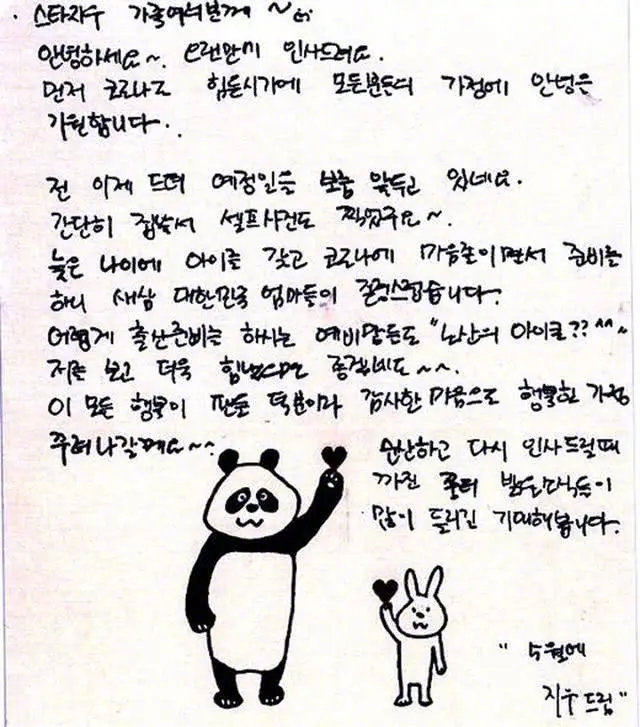 스타지우 가족여러분께 ~
안녕하세요~. 오랜만에 인사드려요.
먼저 코로나로 힘든시기에 모든분들의 가정에 안녕을
기원합니다..
전 이제 드뎌 예정일을 보름 앞두고 있네요.
간단히 집에서 셀프사진도 찍었구요~.
늦은 나이에 아이를 갖고 코로나에 마음졸이면서 준비를
하니 새삼 대한민국 엄마들이 존경스럽습니다.
어렵게 출산준비를 하시는 예비맘들도 "노산의 아이콘?? ^^~
저를 보고 더욱 힘냈으면 좋겠네요~~.
이 모든 행복이 팬분들 덕분이라 감사한 마음으로 행복한 가정
꾸려나갈께요~~
순산하고 다시 인사드릴때
까진 꼭 밝은소식들이
많이 들리길 기대해봅니다.
" 5월에
지우 드림"